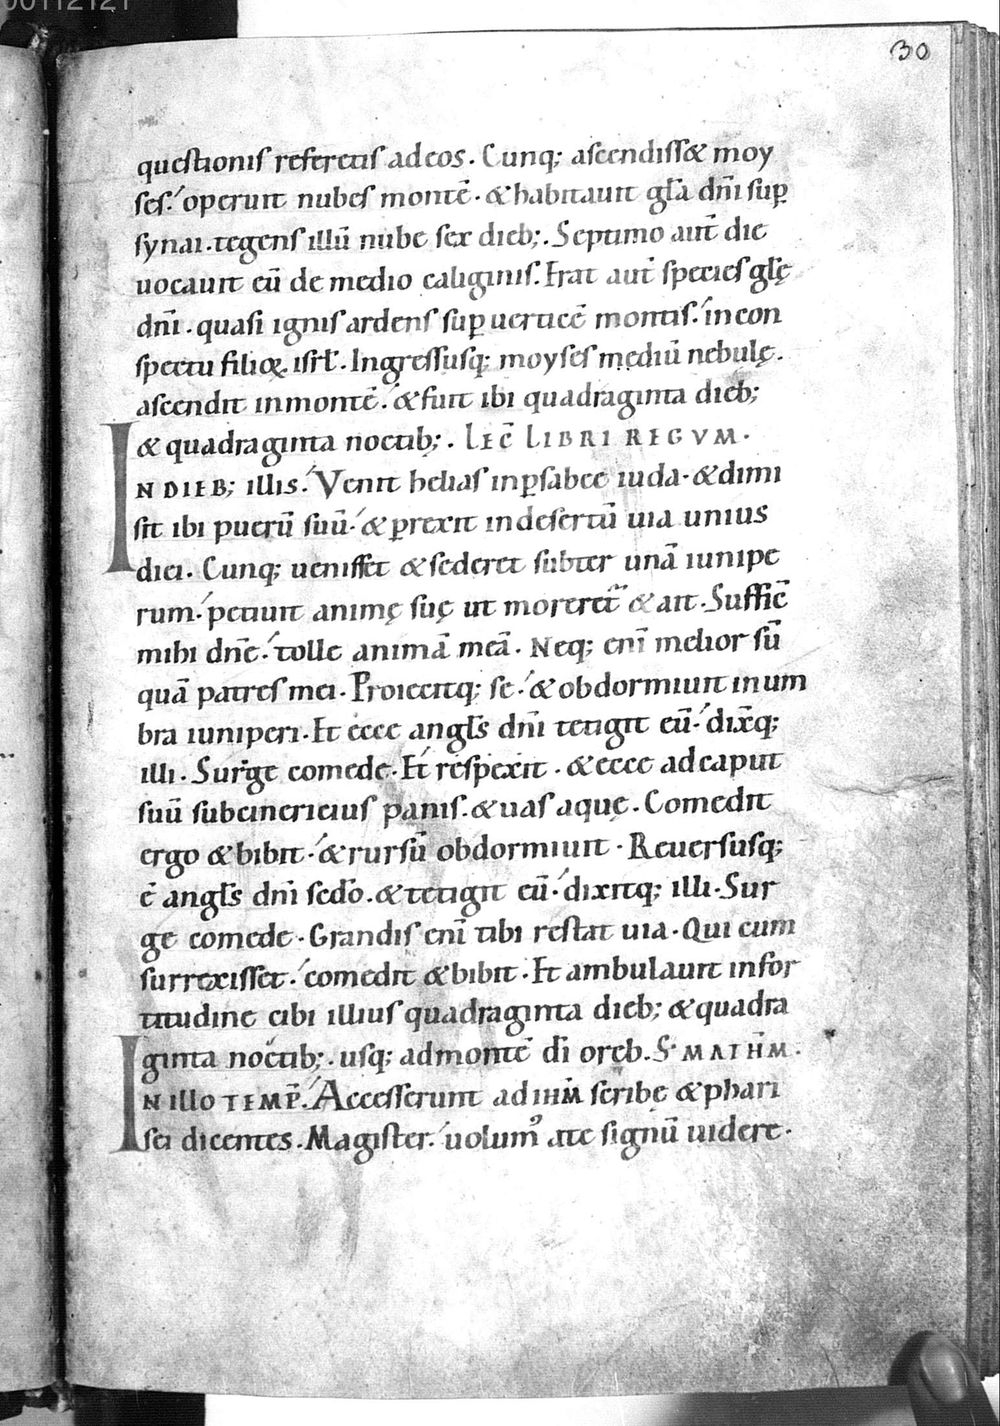 00112121
30
questionis referetis ad eos. Cunq; ascendiss& moy
ses. operuit nubes montē. & habitauit gl̄a dn̄i sup̱
synai. tegens illū nube sex dieb;. Septimo aut̄ die
uocauit eū de medio caliginis. Erat aut̄ species gl̄ę
dn̄i. quasi ignis ardens sup̱ uerticē montis. in con
spectu filioꝝ isrl̄. Ingressusq; moyses mediū nebulę.
ascendit in montē. & fuit ibi quadraginta dieb;
& quadraginta noctib;. LEC̄ LIBRI REGVM.
IN DIEB; illis. Venit helias in p̱sabee iuda. & dimi
sit ibi puerū suū. & p̱rexit in desertū uia unius
diei. Cunq; uenisset & sederet subter unā iunipe
rum. petiuit animę suę ut moreret᷑ & ait. Sufficē
mihi dn̄e. tolle animā meā. Neq; enī melior sū
quā patres mei. Proiecitq; se. & obdormiuit in um
bra iuniperi. Et ecce angl̄s dn̄i tetigit eū. dix̄q;
illi. Surge comede. Et respexit. & ecce ad caput
suū subcinericius panis. & uas aquę. Comedit
ergo & bibit. & rursū obdormiuit. Reuersusq;
ē angl̄s dn̄i sed̄o. & tetigit eū. dixitq; illi. Sur
ge comede. Grandis enī tibi restat uia. Qui cum
surrexisset. comedit & bibit. Et ambulauit in for
titudine cibi illius quadraginta dieb; & quadra
ginta noctib;. usq; ad montē dī oreb. S. MATHM̄.
IN illo TEMP̄. Accesserunt ad ihm̄ scribę & phari
sei dicentes. Magister. uolumꝰ a te signū uidere.